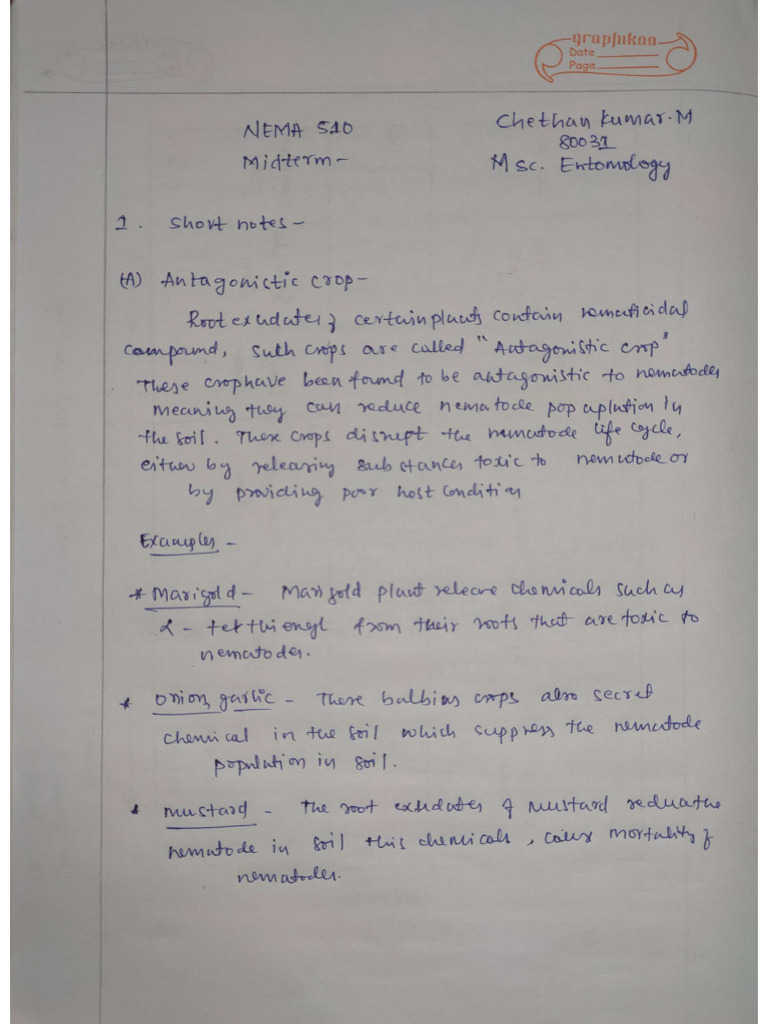 graphikaa
Date
Page
NEMA 510
Chethan Kumar.M
80031
Midterm-
Msc. Entomology
1. Short notes -
(A) Antagonistic crop -
Root exudates of certain plants contain nematicidal
compound, such crops are called "Antagonistic crop"
These crop have been found to be antagonistic to nematodes
meaning they can reduce nematode population in
the soil. These crops disrupt the nematode life cycle,
either by releasing substances toxic to nematode or
by providing poor host condition
Examples -
* Marigold - Marigold plant release chemicals such as
α - terthienyl from their roots that are toxic to
nematodes.
* Onion, garlic - These bulbias crops also secret
chemical in the soil which suppress the nematode
population in soil.
* Mustard - The root exudates of mustard reduce the
nematode in soil this chemicals, cause mortality of
nematodes.